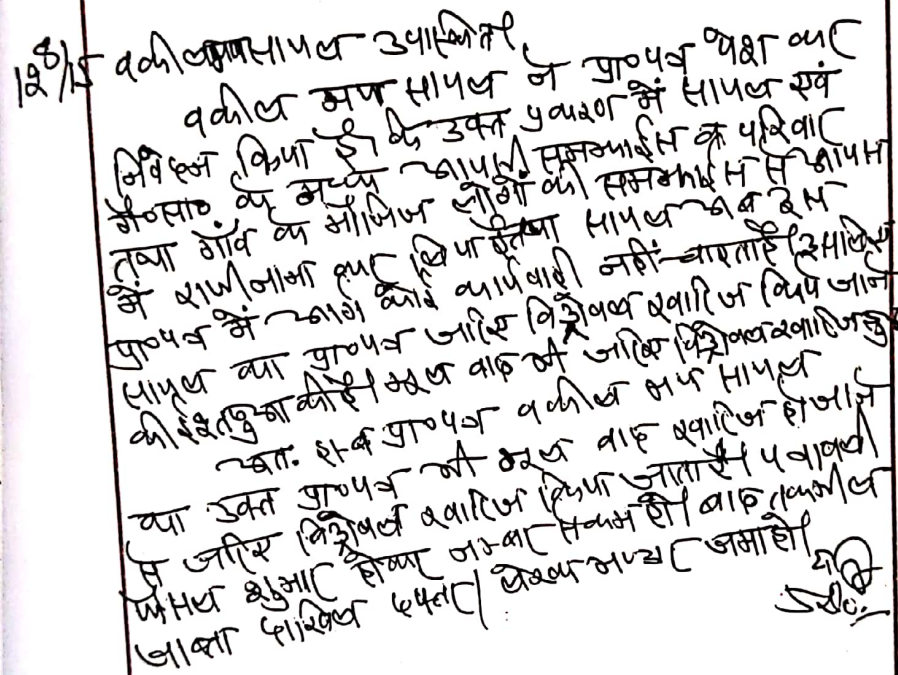 12/8/15 वकील मय सायल उपस्थित।
वकील मय सायल ने प्रा०पत्र पेश कर
निवेदन किया है कि उक्त प्रकरण में सायल एवं
गै०सा० के मध्य आपसी समझाईस व परिवार
तथा गाँव के मौजिज लोगों की समझाईस से आपस
में राजीनामा कर लिया है तथा सायल अब इस
प्रा०पत्र में आगे कोई कार्यवाही नहीं चाहता है। इसलिए
सायल का प्रा०पत्र जरिए विड्रोवल खारिज किये जाने
की इस्तदुआ की है। मूल वाद भी जरिए विड्रोवल खारिज
अतः प्रा०पत्र वकील मय सायल
का उक्त प्रा०पत्र भी मूल वाद खारिज हो जाने
से जरिए विड्रोवल खारिज किया जाता है। पत्रावली
फैसल शुमार होकर नम्बर से कम हो। बाद तकमील
जाब्ता दाखिल दफ्तर। लेख्य भण्डार जमा हो।